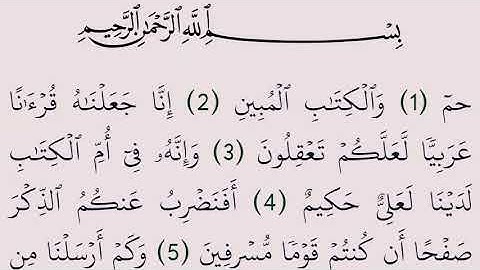 بِسْمِ ٱللَّهِ ٱلرَّحْمَٰنِ ٱلرَّحِيمِ
حمٓ (1) وَٱلْكِتَٰبِ ٱلْمُبِينِ (2) إِنَّا جَعَلْنَٰهُ قُرْءَٰنًا
عَرَبِيًّا لَّعَلَّكُمْ تَعْقِلُونَ (3) وَإِنَّهُۥ فِىٓ أُمِّ ٱلْكِتَٰبِ
لَدَيْنَا لَعَلِىٌّ حَكِيمٌ (4) أَفَنَضْرِبُ عَنكُمُ ٱلذِّكْرَ
صَفْحًا أَن كُنتُمْ قَوْمًا مُّسْرِفِينَ (5) وَكَمْ أَرْسَلْنَا مِن